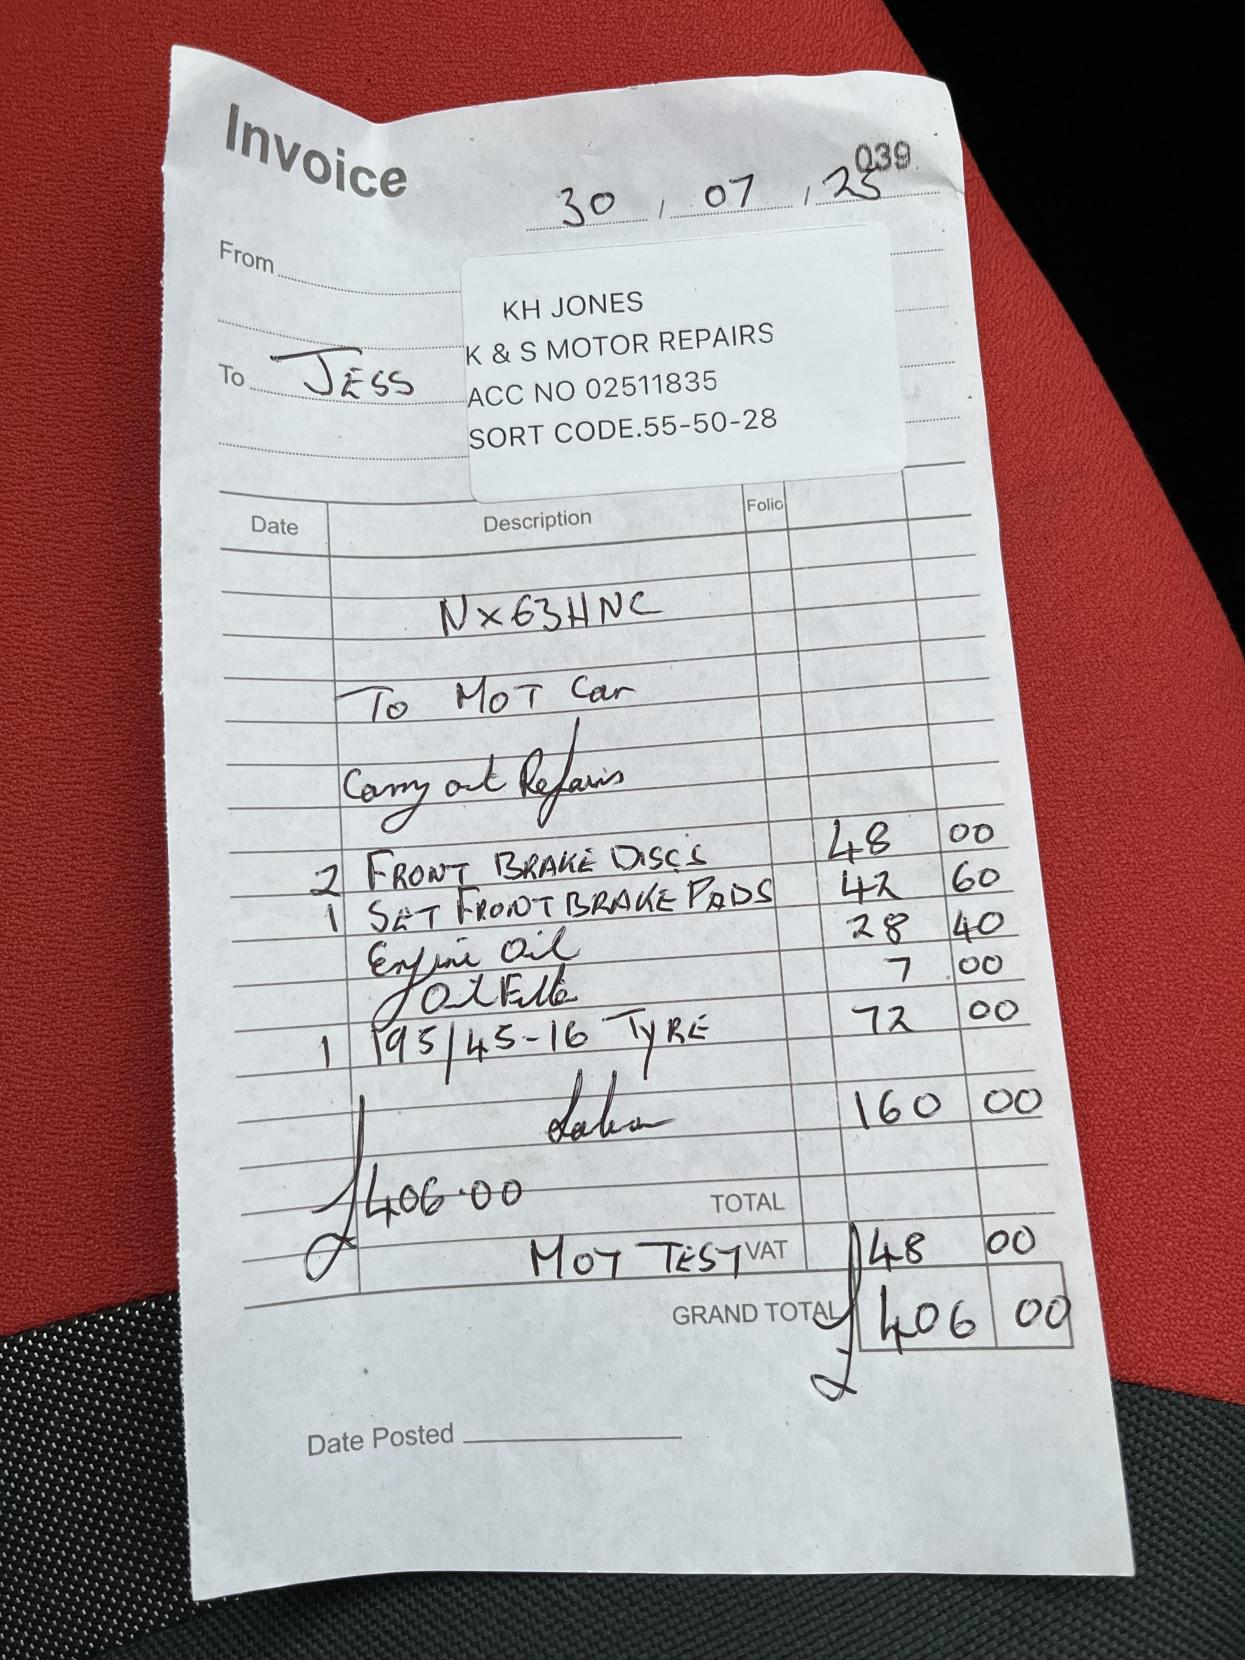 Invoice
039
30 / 07 / 25
From
KH JONES
K & S MOTOR REPAIRS
ACC NO 02511835
SORT CODE.55-50-28
To JESS
Date Description Folio
NX63HNC
To MOT Car
Carry out Repairs
2 FRONT BRAKE DISCS 48 00
1 SET FRONT BRAKE PADS 42 60
Engine Oil 28 40
Oil Filter 7 00
1 195/45-16 TYRE 72 00
Labour 160 00
£406.00 TOTAL
MOT TEST VAT 48 00
GRAND TOTAL £406 00
Date Posted